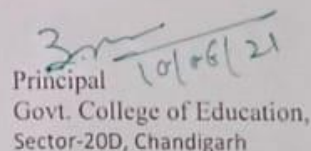 10/06/21
Principal
Govt. College of Education,
Sector-20D, Chandigarh